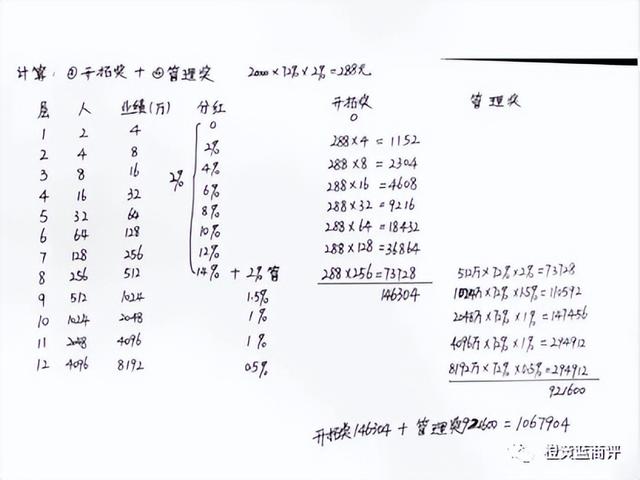 计算: ①开拓奖 + ④管理奖 2000×72%×2%=288元
层 人 业绩(万) 分红 开拓奖 管理奖
1 2 4 0 0
2 4 8 2% 288×4=1152
3 8 16 2% 4% 288×8=2304
4 16 32 6% 288×16=4608
5 32 64 8% 288×32=9216
6 64 128 10% 288×64=18432
7 128 256 12% 288×128=36864
8 256 512 14% + 2%管 288×256=73728 512万×72%×2%=73728
9 512 1024 1.5% 146304 1024万×72%×1.5%=110592
10 1024 2048 1% 2048万×72%×1%=147456
11 2048 4096 1% 4096万×72%×1%=294912
12 4096 8192 0.5% 8192万×72%×0.5%=294912
921600
开拓奖146304 + 管理奖921600=1067904
橙灸蓝商评